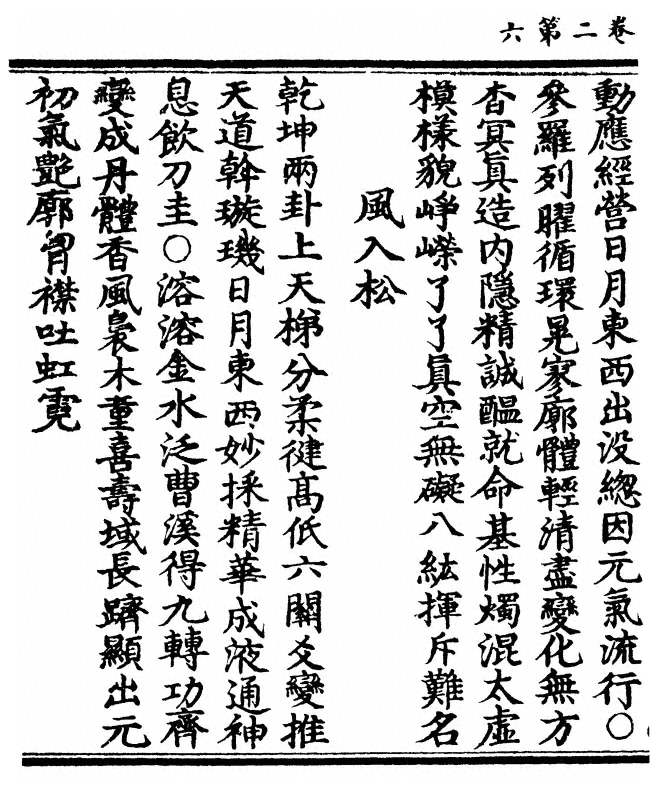 卷二第六
動應經營日月東西出没緫因元氣流行○
參羅列曜循環晃寥廓體輕清盡變化無方
杳冥眞造内隱精誠醖就命基性燭混太虛
模樣貌崢嶸了了眞空無礙八紘揮斥難名
風入松
乾坤兩卦上天梯分柔健髙低六闗爻變推
天道斡璇璣日月東西妙採精華成液通神
息飲刀圭○溶溶金水泛曹溪得九轉功齊
變成丹體香風裊木童喜壽域長躋顯出元
初氣艷廓胷襟吐虹霓